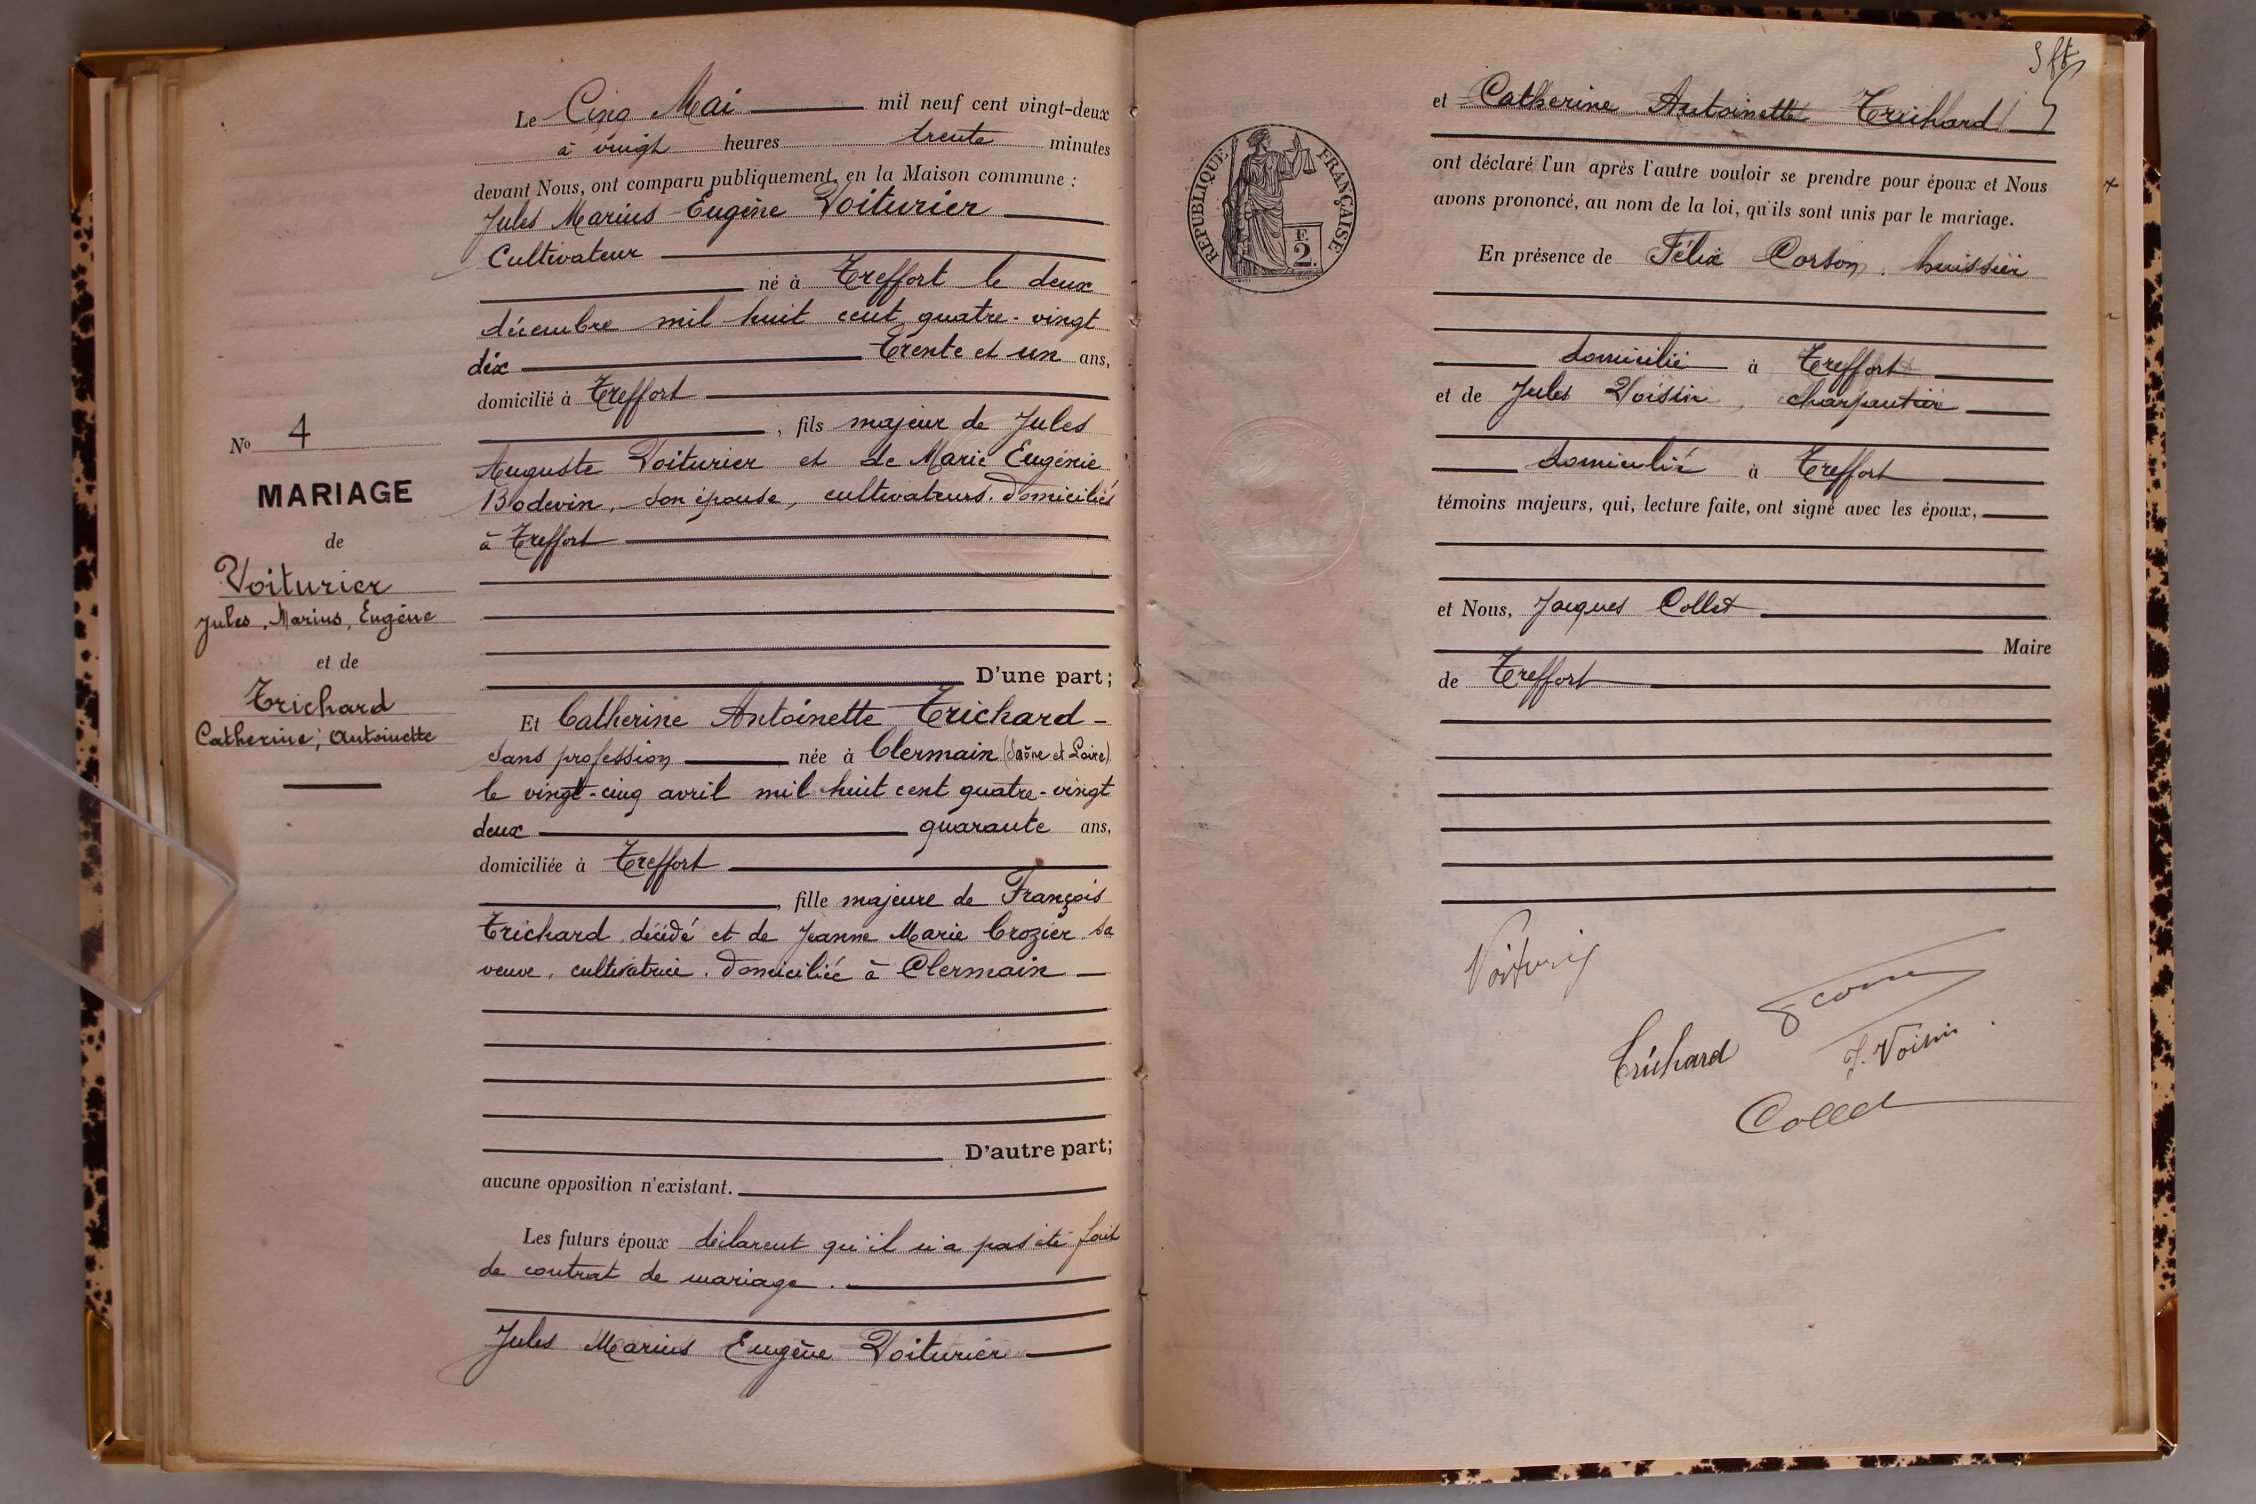 Le Cinq Mai mil neuf cent vingt-deux
à vingt heures trente minutes
devant Nous, ont comparu publiquement en la Maison commune :
Jules Marius Eugène Voiturier
Cultivateur
né à Treffort le deux
décembre mil huit cent quatre-vingt
dix Trente et un ans,
domicilié à Treffort
, fils majeur de Jules
Auguste Voiturier et de Marie Eugénie
Bodevin, son épouse, cultivateurs, domiciliés
à Treffort
D'une part;
Et Catherine Antoinette Trichard -
sans profession née à Clermain (Saône et Loire)
le vingt-cinq avril mil huit cent quatre-vingt
deux quarante ans,
domiciliée à Treffort
, fille majeure de François
Trichard, décédé et de Jeanne Marie Crozier sa
veuve, cultivatrice, domiciliée à Clermain
D'autre part;
aucune opposition n'existant.
Les futurs époux déclarent qu'il n'a pas été fait
de contrat de mariage.
Jules Marius Eugène Voiturier
No 4
MARIAGE
de
Voiturier
Jules, Marius, Eugène
et de
Trichard
Catherine, Antoinette
et Catherine Antoinette Trichard
ont déclaré l'un après l'autre vouloir se prendre pour époux et Nous
avons prononcé, au nom de la loi, qu'ils sont unis par le mariage.
En présence de Félix Corson, huissier
domicilié à Treffort
et de Jules Voisin, charpentier
domicilié à Treffort
témoins majeurs, qui, lecture faite, ont signé avec les époux,
et Nous, Jacques Collet
Maire
de Treffort
REPUBLIQUE FRANÇAISE
F.
2.
Trichard
J. Voisin
Collet